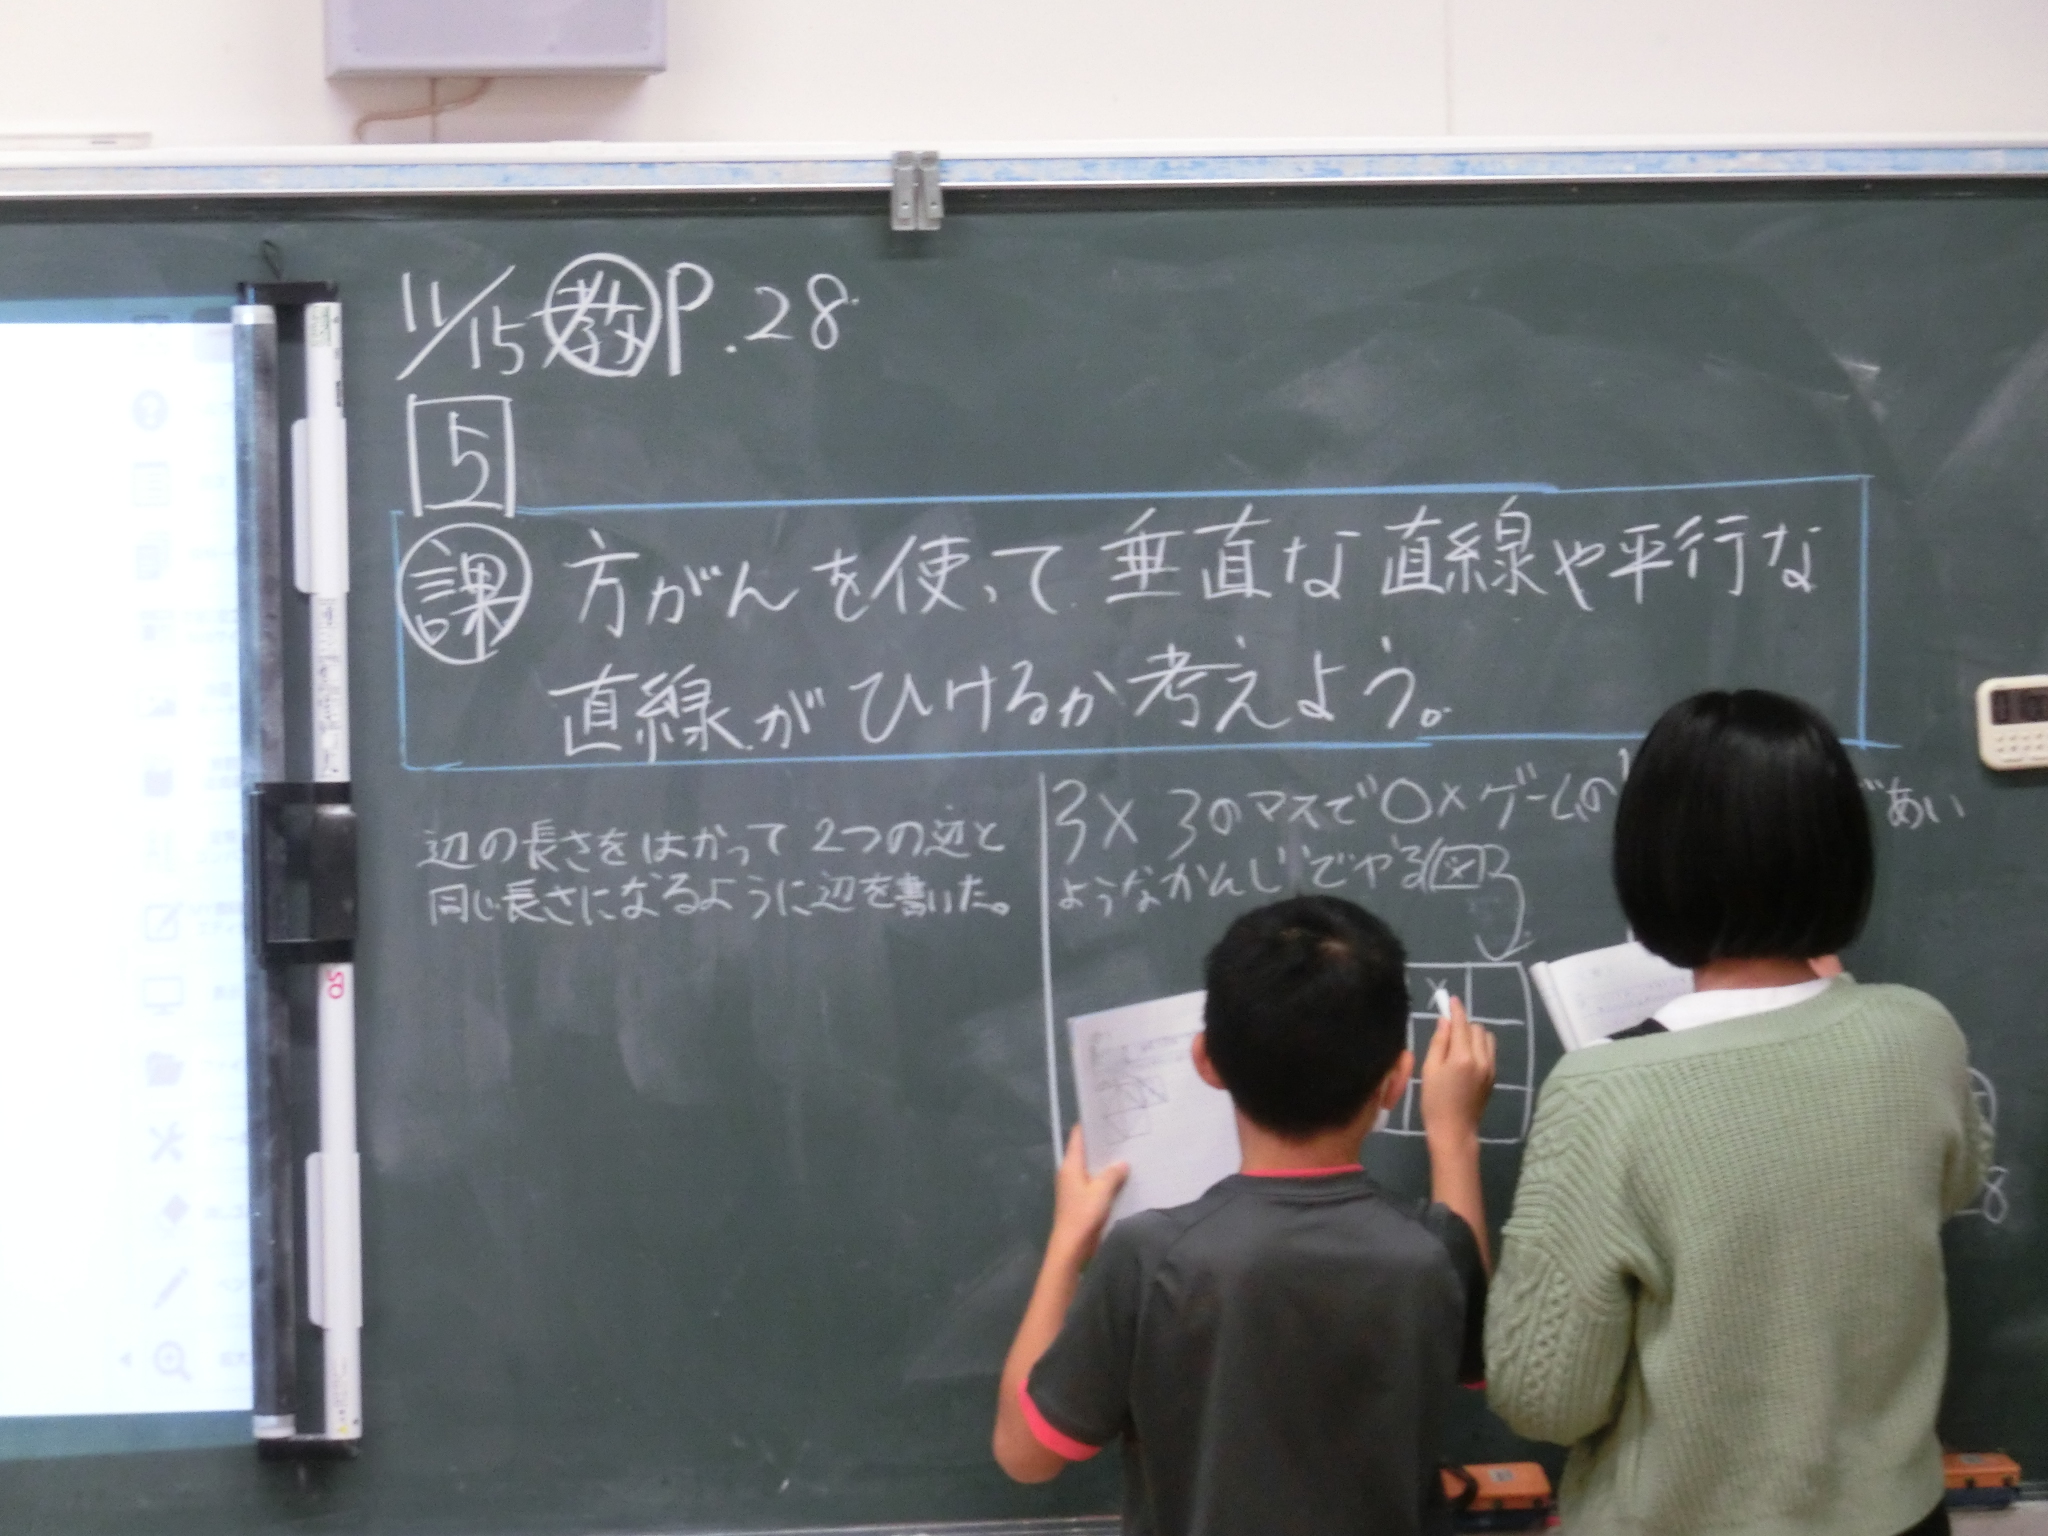 11/15 教 P.28
5
課 方がんを使って垂直な直線や平行な
直線がひけるか考えよう。
辺の長さをはかって2つの辺と
同じ長さになるように辺を書いた。
3×3のマスで○×ゲームの
ようなかんじでやる(図3
×
あい
8
50